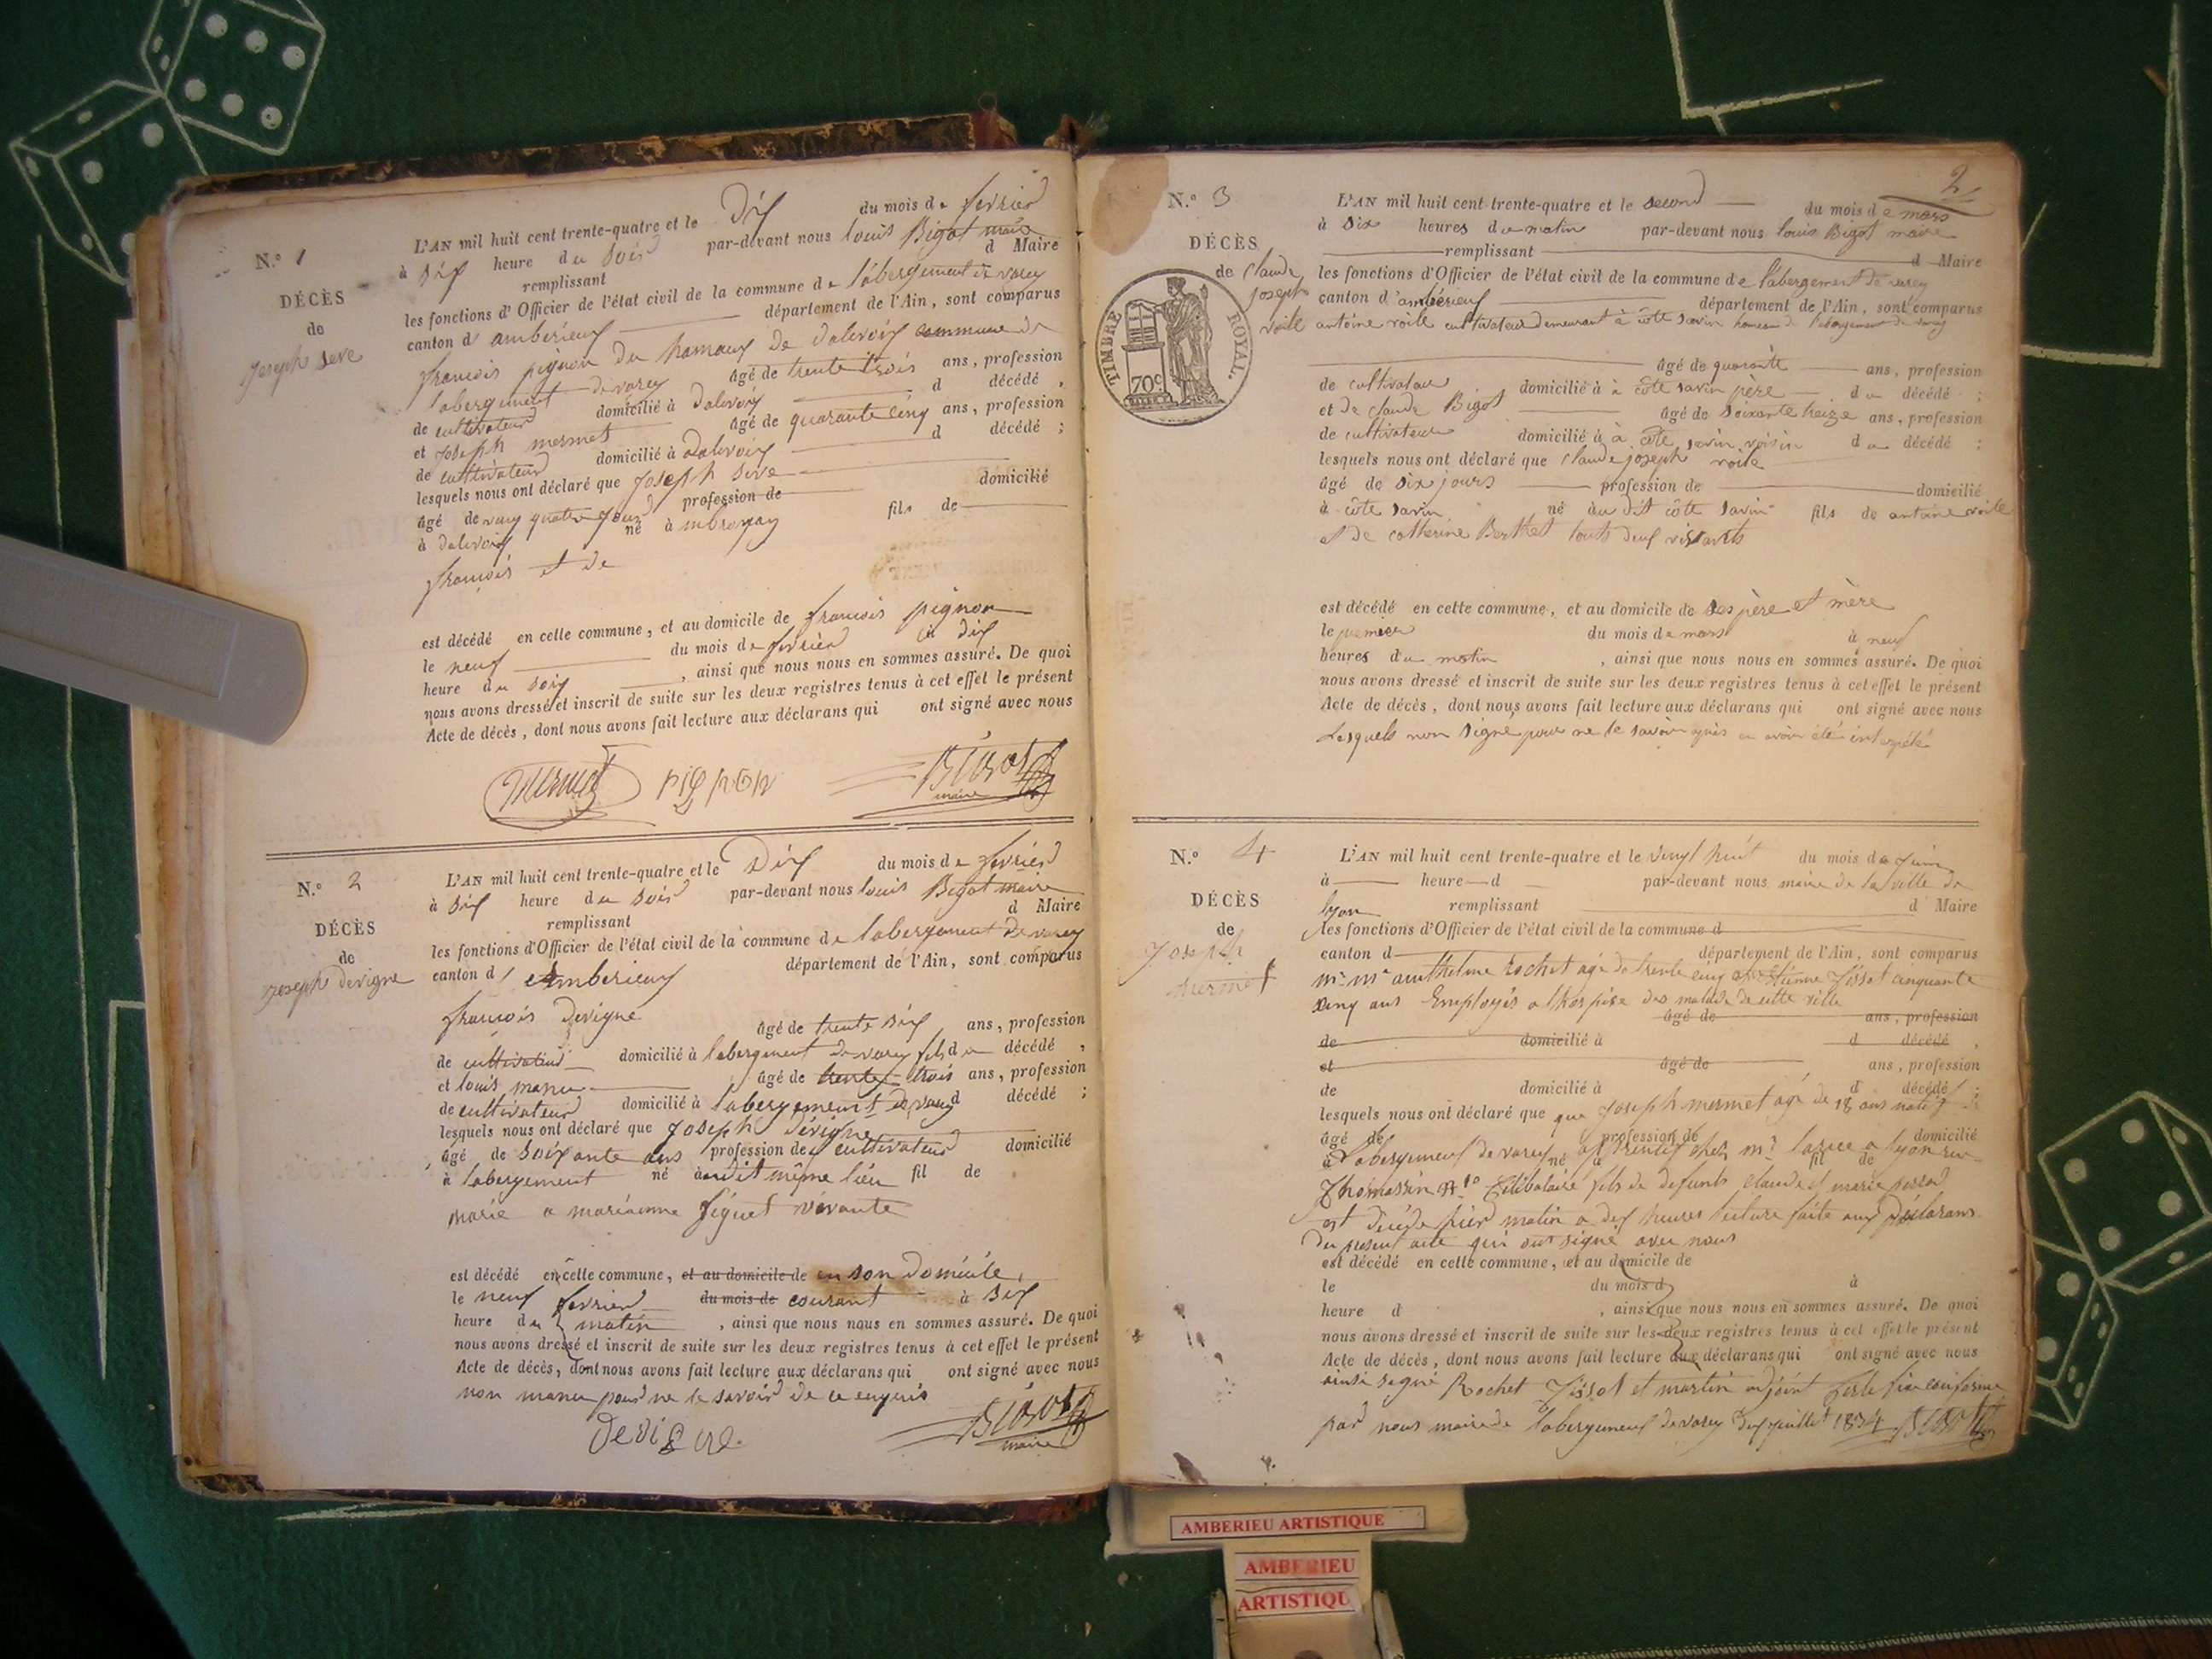 N.º 1
DÉCÈS
de
joseph seve
L'AN mil huit cent trente-quatre et le Dix du mois de fevrier
à six heure du soir par-devant nous louis Bigot maire
remplissant d Maire
les fonctions d'Officier de l'état civil de la commune de l'abergement de varey
canton d'amberieux département de l'Ain, sont comparus
francois pignon du hamaux de dalivoix commune de
l'abergement de varey âgé de trente trois ans, profession
de cultivateur domicilié à dalivoix d décédé,
et joseph mermet âgé de quarante cinq ans, profession
de cultivateur domicilié à dalivoix d décédé;
lesquels nous ont déclaré que joseph seve
âgé de quatre jour profession de domicilié
à dalivoix né à ambronay fils de
francois et de
est décédé en cette commune, et au domicile de francois pignon
le neuf du mois de fevrier à dix
heure du soir, ainsi que nous nous en sommes assuré. De quoi
nous avons dressé et inscrit de suite sur les deux registres tenus à cet effet le présent
Acte de décès, dont nous avons fait lecture aux déclarans qui ont signé avec nous
mermet pignon Bigot
maire
N.º 2
DÉCÈS
de
joseph devigne
L'AN mil huit cent trente-quatre et le Dix du mois de fevrier
à six heure du soir par-devant nous louis Bigot maire
remplissant d Maire
les fonctions d'Officier de l'état civil de la commune de l'abergement de varey
canton d'amberieux département de l'Ain, sont comparus
francois devigne
âgé de trente six ans, profession
de cultivateur domicilié à labergement de varey fils du décédé,
et louis manu âgé de trente trois ans, profession
de cultivateur domicilié à labergement de varey d décédé;
lesquels nous ont déclaré que joseph devigne
âgé de soixante ans profession de cultivateur domicilié
à labergement né audit même lieu fil de
marie a marianne figuet vivante
est décédé en cette commune, et au domicile de en son domicile,
le neuf fevrier du mois de courant à six
heure du matin, ainsi que nous nous en sommes assuré. De quoi
nous avons dressé et inscrit de suite sur les deux registres tenus à cet effet le présent
Acte de décès, dont nous avons fait lecture aux déclarans qui ont signé avec nous
non manu pour ne le savoir de ce enquis
devigne Bigot
maire
2
N.º 3
DÉCÈS
de Claude
joseph
voile
TIMBRE ROYAL.
70c
L'AN mil huit cent trente-quatre et le second du mois de mars
à six heures du matin par-devant nous louis Bigot maire
remplissant d Maire
les fonctions d'Officier de l'état civil de la commune de l'abergement de varey
canton d'ambérieux département de l'Ain, sont comparus
antoine voile cultivateur demeurant à côte savin hameau de l'abergement de varey
âgé de quarante ans, profession
de cultivateur domicilié à à côte savin père du décédé;
et de claude Bigot âgé de soixante treize ans, profession
de cultivateur domicilié à à côte savin voisin du décédé;
lesquels nous ont déclaré que claude joseph voile
âgé de six jours profession de domicilié
à côte savin né au dit côte savin fils de antoine voile
et de catherine Berthet touts deux vivants
est décédé en cette commune, et au domicile de ses père et mère
le premier du mois de mars à neuf
heures du matin, ainsi que nous nous en sommes assuré. De quoi
nous avons dressé et inscrit de suite sur les deux registres tenus à cet effet le présent
Acte de décès, dont nous avons fait lecture aux déclarans qui ont signé avec nous
Lesquels non signé pour ne le savoir après en avoir été interpelé
N.º 4
DÉCÈS
de
Joseph
mermet
L'AN mil huit cent trente-quatre et le vingt huit du mois de juin
à heure d par-devant nous maire de la ville de
lyon remplissant d Maire
les fonctions d'Officier de l'état civil de la commune d
canton d département de l'Ain, sont comparus
mr mr anthelme Rochet agé de trente cinq ans Etienne Tissot cinquante
cinq ans Employés a lhospice des malade de cette ville
âgé de ans, profession
de domicilié à d décédé,
et âgé de ans, profession
de domicilié à d décédé;
lesquels nous ont déclaré que que joseph mermet agé de 18 ans natif
âgé de profession de domicilié
à labergement de varey né à apprentif chez mr fil de a lyon rue
Thomassin célibataire fils de defunts claude et marie
est décédé hier matin a dix heures lecture faite aux déclarans
du present acte qui ont signé avec nous
est décédé en cette commune, et au domicile de
le du mois d à
heure d, ainsi que nous nous en sommes assuré. De quoi
nous avons dressé et inscrit de suite sur les deux registres tenus à cet effet le présent
Acte de décès, dont nous avons fait lecture aux déclarans qui ont signé avec nous
ainsi signé Rochet Tissot et martin adjoint conforme
par nous maire de labergement de varey juillet 1834 Bigot
AMBERIEU ARTISTIQUE
AMBERIEU
ARTISTIQU